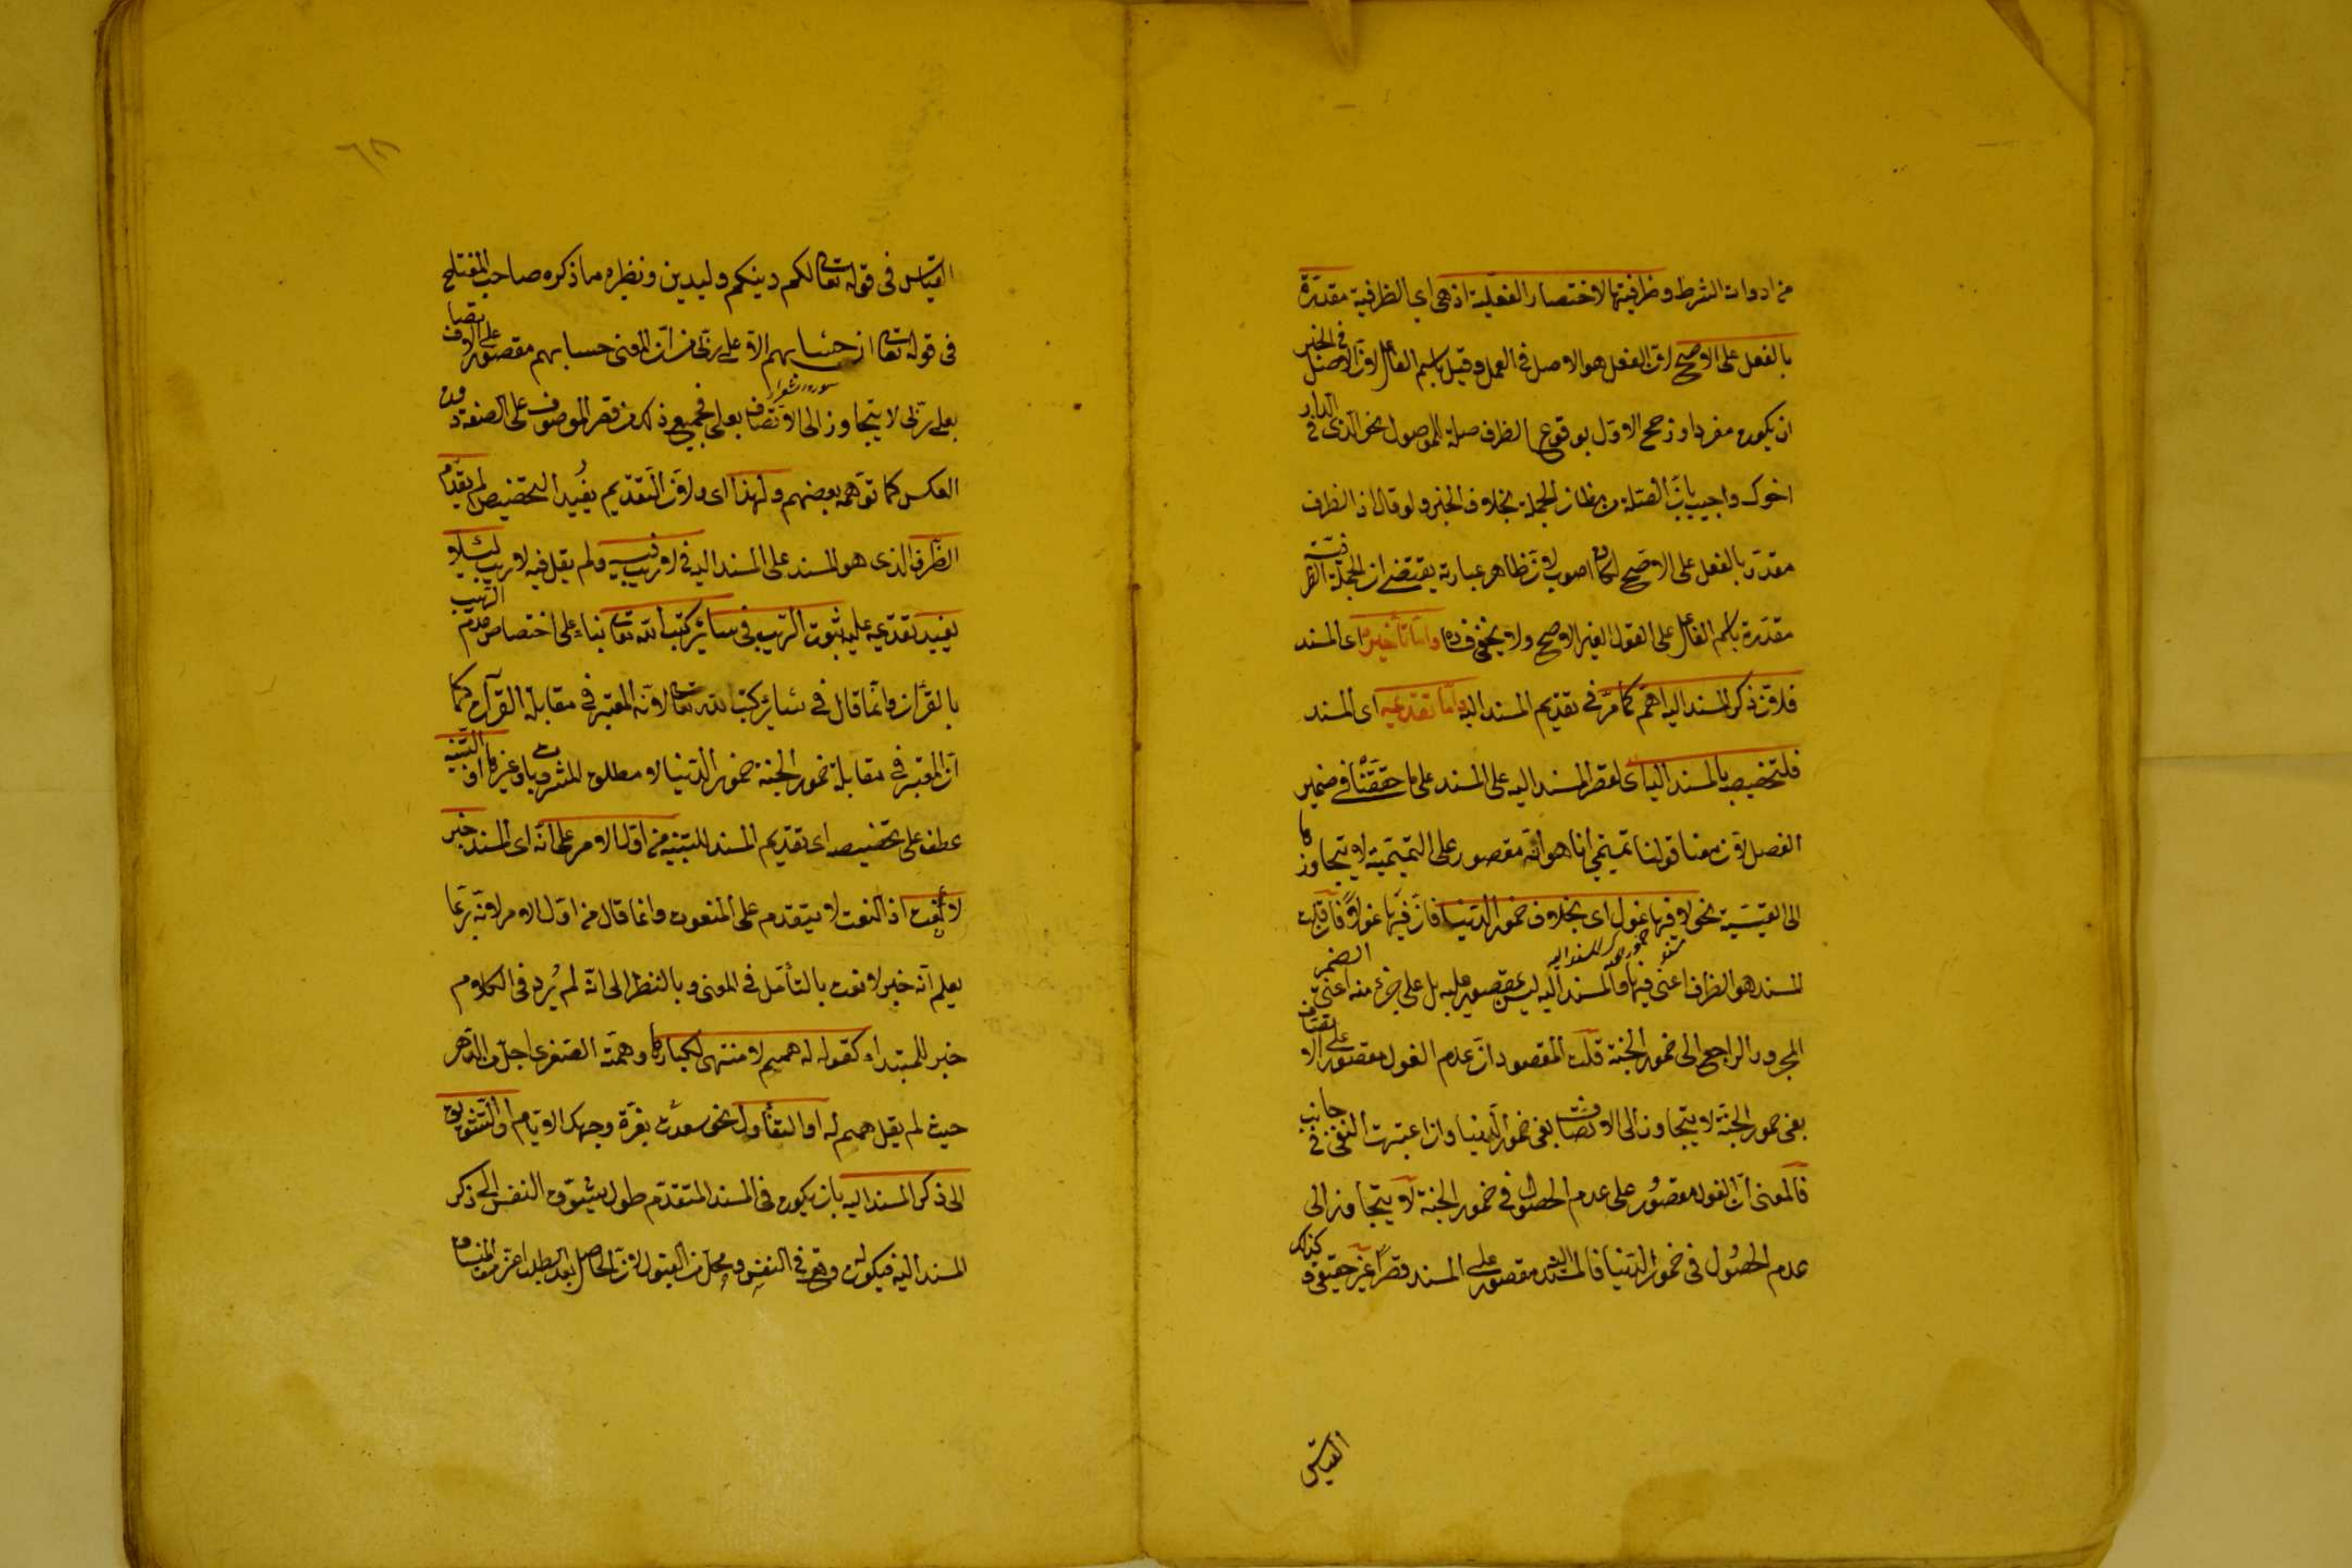 من ادوات الشرط وظرفيتها لاختصار الفعلية اذ هي اي الظرفية مقدرة
بالفعل على الاصح لان الفعل هو الاصل في العمل وقيل باسم الفاعل لان الاصل في الخبر
ان يكون مفردا ورجح الاول بوقوع الظرف صلة للموصول نحو الذي في الدار
اخوك واجيب بان الصلة من مظان الجملة بخلاف الخبر ولو قال اذ الظرف
مقدر بالفعل على الاصح لكان اصوب لان ظاهر عبارته يقتضي ان الجملة الظرفية
مقدرة باسم الفاعل على القول الغير الاصح ولا يخفى فساده واما تأخيره اى المسند
فلان ذكر المسند اليه اهم كما مر في تقديم المسند اليه واما تقديمه اى المسند
فلتخصيصه بالمسند اليه اى لقصر المسند اليه على المسند على ما حققنا في ضمير
الفصل لان معنا قولنا تميمي انا هو انه مقصور على التميمية لا يتجاوزها
الى القيسية نحو لا فيها غول اى بخلاف خمور الدنيا فان فيها غولا فان قلت
المسند هو الظرف اعنى فيها والمسند اليه ليس بمقصور عليه بل على جزء منه اعنى الضمير
المجرور الراجع الى خمور الجنة قلت المقصود ان عدم الغول مقصور على الاتصاف
بفى خمور الجنة لا يتجاوزه الى الاتصاف بفى خمور الدنيا وان اعتبرت النفى في جانب
فالمعنى ان الغول مقصور على عدم الحصول في خمور الجنة لا يتجاوزه الى
عدم الحصول في خمور الدنيا فالمسند اليه مقصور على المسند قصرا غير حقيقى وكذلك
القياس
٦٨
القياس في قوله تعالى لكم دينكم ولي دين ونظيره ما ذكره صاحب المفتاح
في قوله تعالى ان حسابهم الا على ربي من ان المعنى حسابهم مقصور على الاتصاف
سوره شعرا
بعلى ربى لا يتجاوزه الى الاتصاف بعلى فجميع ذلك من قصر الموصوف على الصفة دون
العكس كما توهمه بعضهم ولهذا اى ولان التقديم يفيد التخصيص لم يقدم
الظرف الذى هو المسند على المسند اليه في لا ريب فيه ولم يقل فيه لا ريب لئلا
يفيد تقديمه عليه ثبوت الريب في سائر كتب الله تعالى بناء على اختصاص عدم الريب
بالقرآن وانما قال في سائر كتب الله تعالى لانه المعتبر في مقابلة القرآن كما
ان المعتبر في مقابلة خمور الجنة خمور الدنيا لا مطلق المشروبات وغيرها او التنبيه
عطف على تخصيصه اى تقديم المسند للتنبيه من اول الامر على انه اى المسند خبر
لا نعت اذ النعت لا يتقدم على المنعوت وانما قال من اول الامر لانه ربما
يعلم انه خبر لا نعت بالتأمل في المعنى وبالنظر الى انه لم يرد في الكلام
خبر للمبتدا كقوله له همم لا منتهى لكبارها وهمته الصغرى اجل من الدهر
حيث لم يقل همم له او التفأول نحو سعدت بغرة وجهك الايام او التشويق
الى ذكر المسند اليه بان يكون في المسند المتقدم طول يشوق النفس الى ذكر
المسند اليه فيكون له وقع في النفس ومحل من القبول لان الحاصل بعد الطلب اعز من المنساق